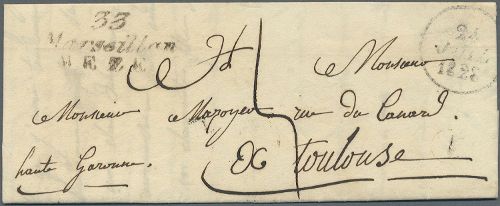 33
Marseillan
MEZE
24
1828
A Monsieur
Monsieur Mazoyer rue du Canard
haute Garonne. A Toulouse